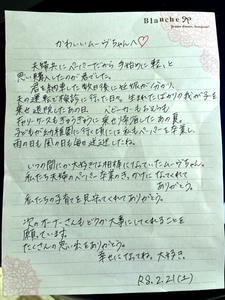 Blanche
かわいいムーヴちゃんへ♡
夫婦共にペーパーだから手始めに、と
思い購入したのが君でした。
君を納車した数日後に妊娠がわかり、
夫の運転で検診に行った日々。生まれたばかりの我が子を
乗せ退院したあの日
ベビーカーもおむつも
ぎゅうぎゅうに乗せ帰省したあの夏。
子どもが幼稚園に行く頃には私もペーパーを卒業し、
雨の日も風の日も毎日送迎したね。
いつの間にか大好きな相棒になっていたムーヴちゃん。
私たち夫婦のペーパー卒業のきっかけになってくれて
ありがとう。
私たちの子育てを見守ってくれてありがとう。
次のオーナーさんもどうか大事にしてくれることを
願っています。
たくさんの思い出をありがとう。
幸せになってね。大好き。
R8.2.21(土)